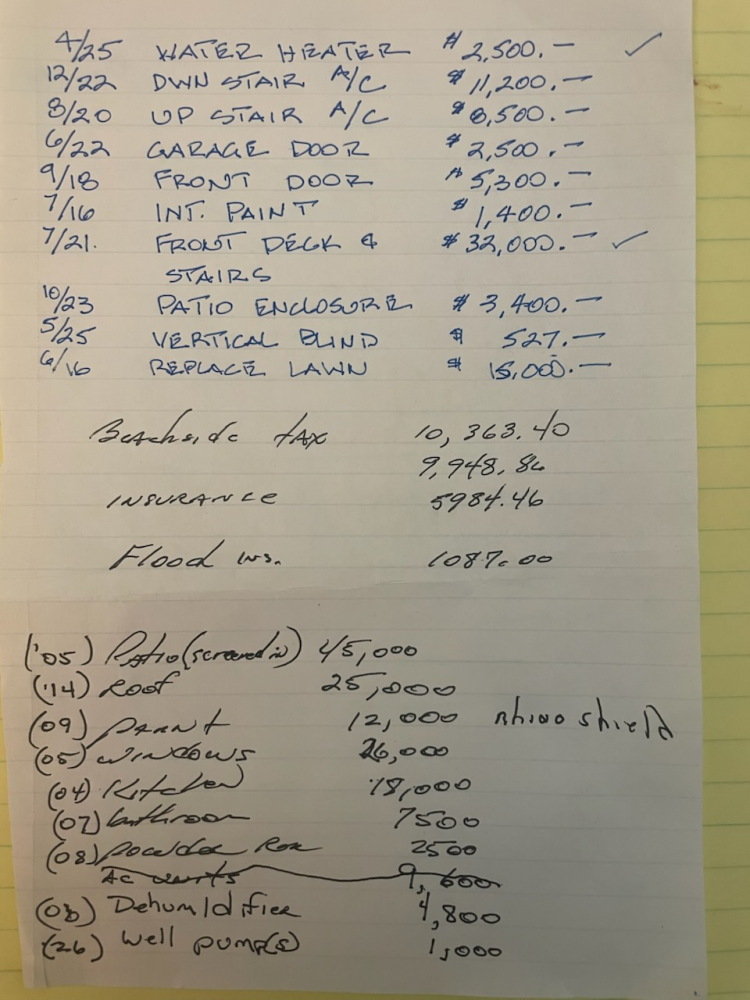 4/25 WATER HEATER $ 2,500.— ✓
12/22 DWN STAIR A/C $ 11,200.—
8/20 UP STAIR A/C $ 8,500.—
6/22 GARAGE DOOR $ 2,500.—
9/18 FRONT DOOR $ 5,300.—
7/16 INT. PAINT $ 1,400.—
7/21. FRONT DECK & $ 32,000.— ✓
STAIRS
10/23 PATIO ENCLOSURE $ 3,400.—
5/25 VERTICAL BLIND $ 527.—
6/16 REPLACE LAWN $ 15,000.—
Beachside tax 10,363.40
9,948.86
INSURANCE 5984.46
Flood ins. 1087.00
('05) Patio (screened in) 45,000
('14) Roof 25,000
(09) paint 12,000 Rhino shield
(05) windows 26,000
(04) Kitchen 18,000
(07) bathroom 7500
(08) powder Rm 2500
AC units 9,600
(08) Dehumidifier 4,800
(26) well pump(s) 1,000